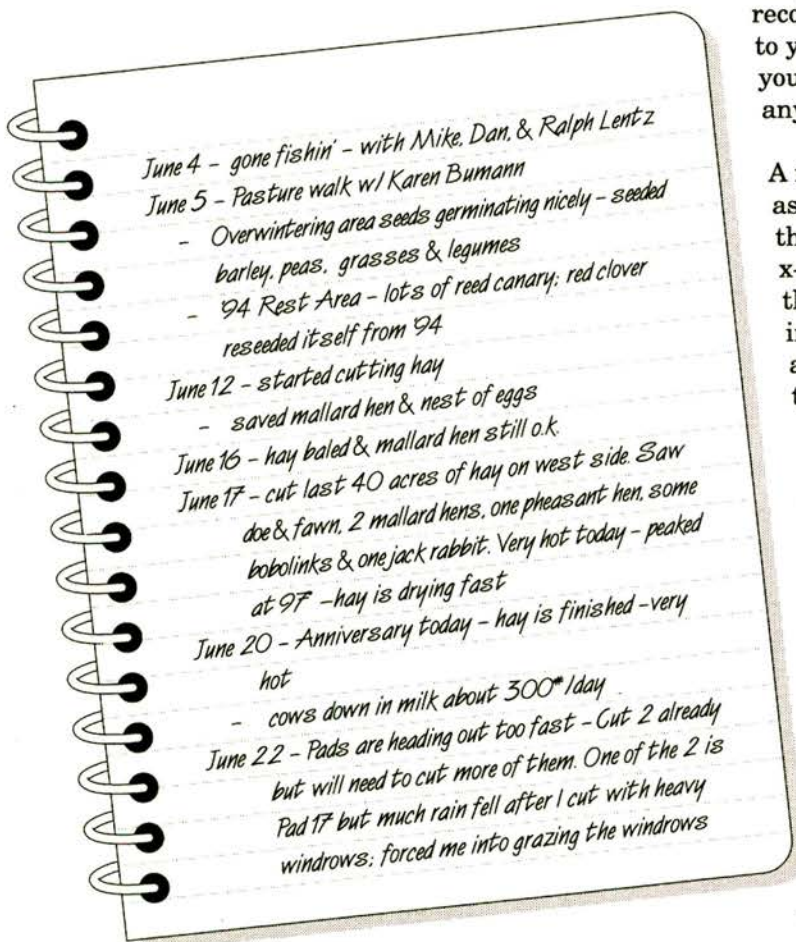 June 4 - gone fishin' - with Mike, Dan, & Ralph Lentz
June 5 - Pasture walk w/ Karen Bumann
- Overwintering area seeds germinating nicely - seeded
barley, peas, grasses & legumes
- '94 Rest Area - lots of reed canary; red clover
reseeded itself from '94
June 12 - started cutting hay
- saved mallard hen & nest of eggs
June 16 - hay baled & mallard hen still o.k.
June 17 - cut last 40 acres of hay on west side. Saw
doe & fawn, 2 mallard hens, one pheasant hen, some
bobolinks & one jack rabbit. Very hot today - peaked
at 97° - hay is drying fast
June 20 - Anniversary today - hay is finished - very
hot
- cows down in milk about 300# /day
June 22 - Pads are heading out too fast - Cut 2 already
but will need to cut more of them. One of the 2 is
Pad 17 but much rain fell after I cut with heavy
windrows; forced me into grazing the windrows
reco
to y
you
any
A
as
th
x-
th
i
a
t